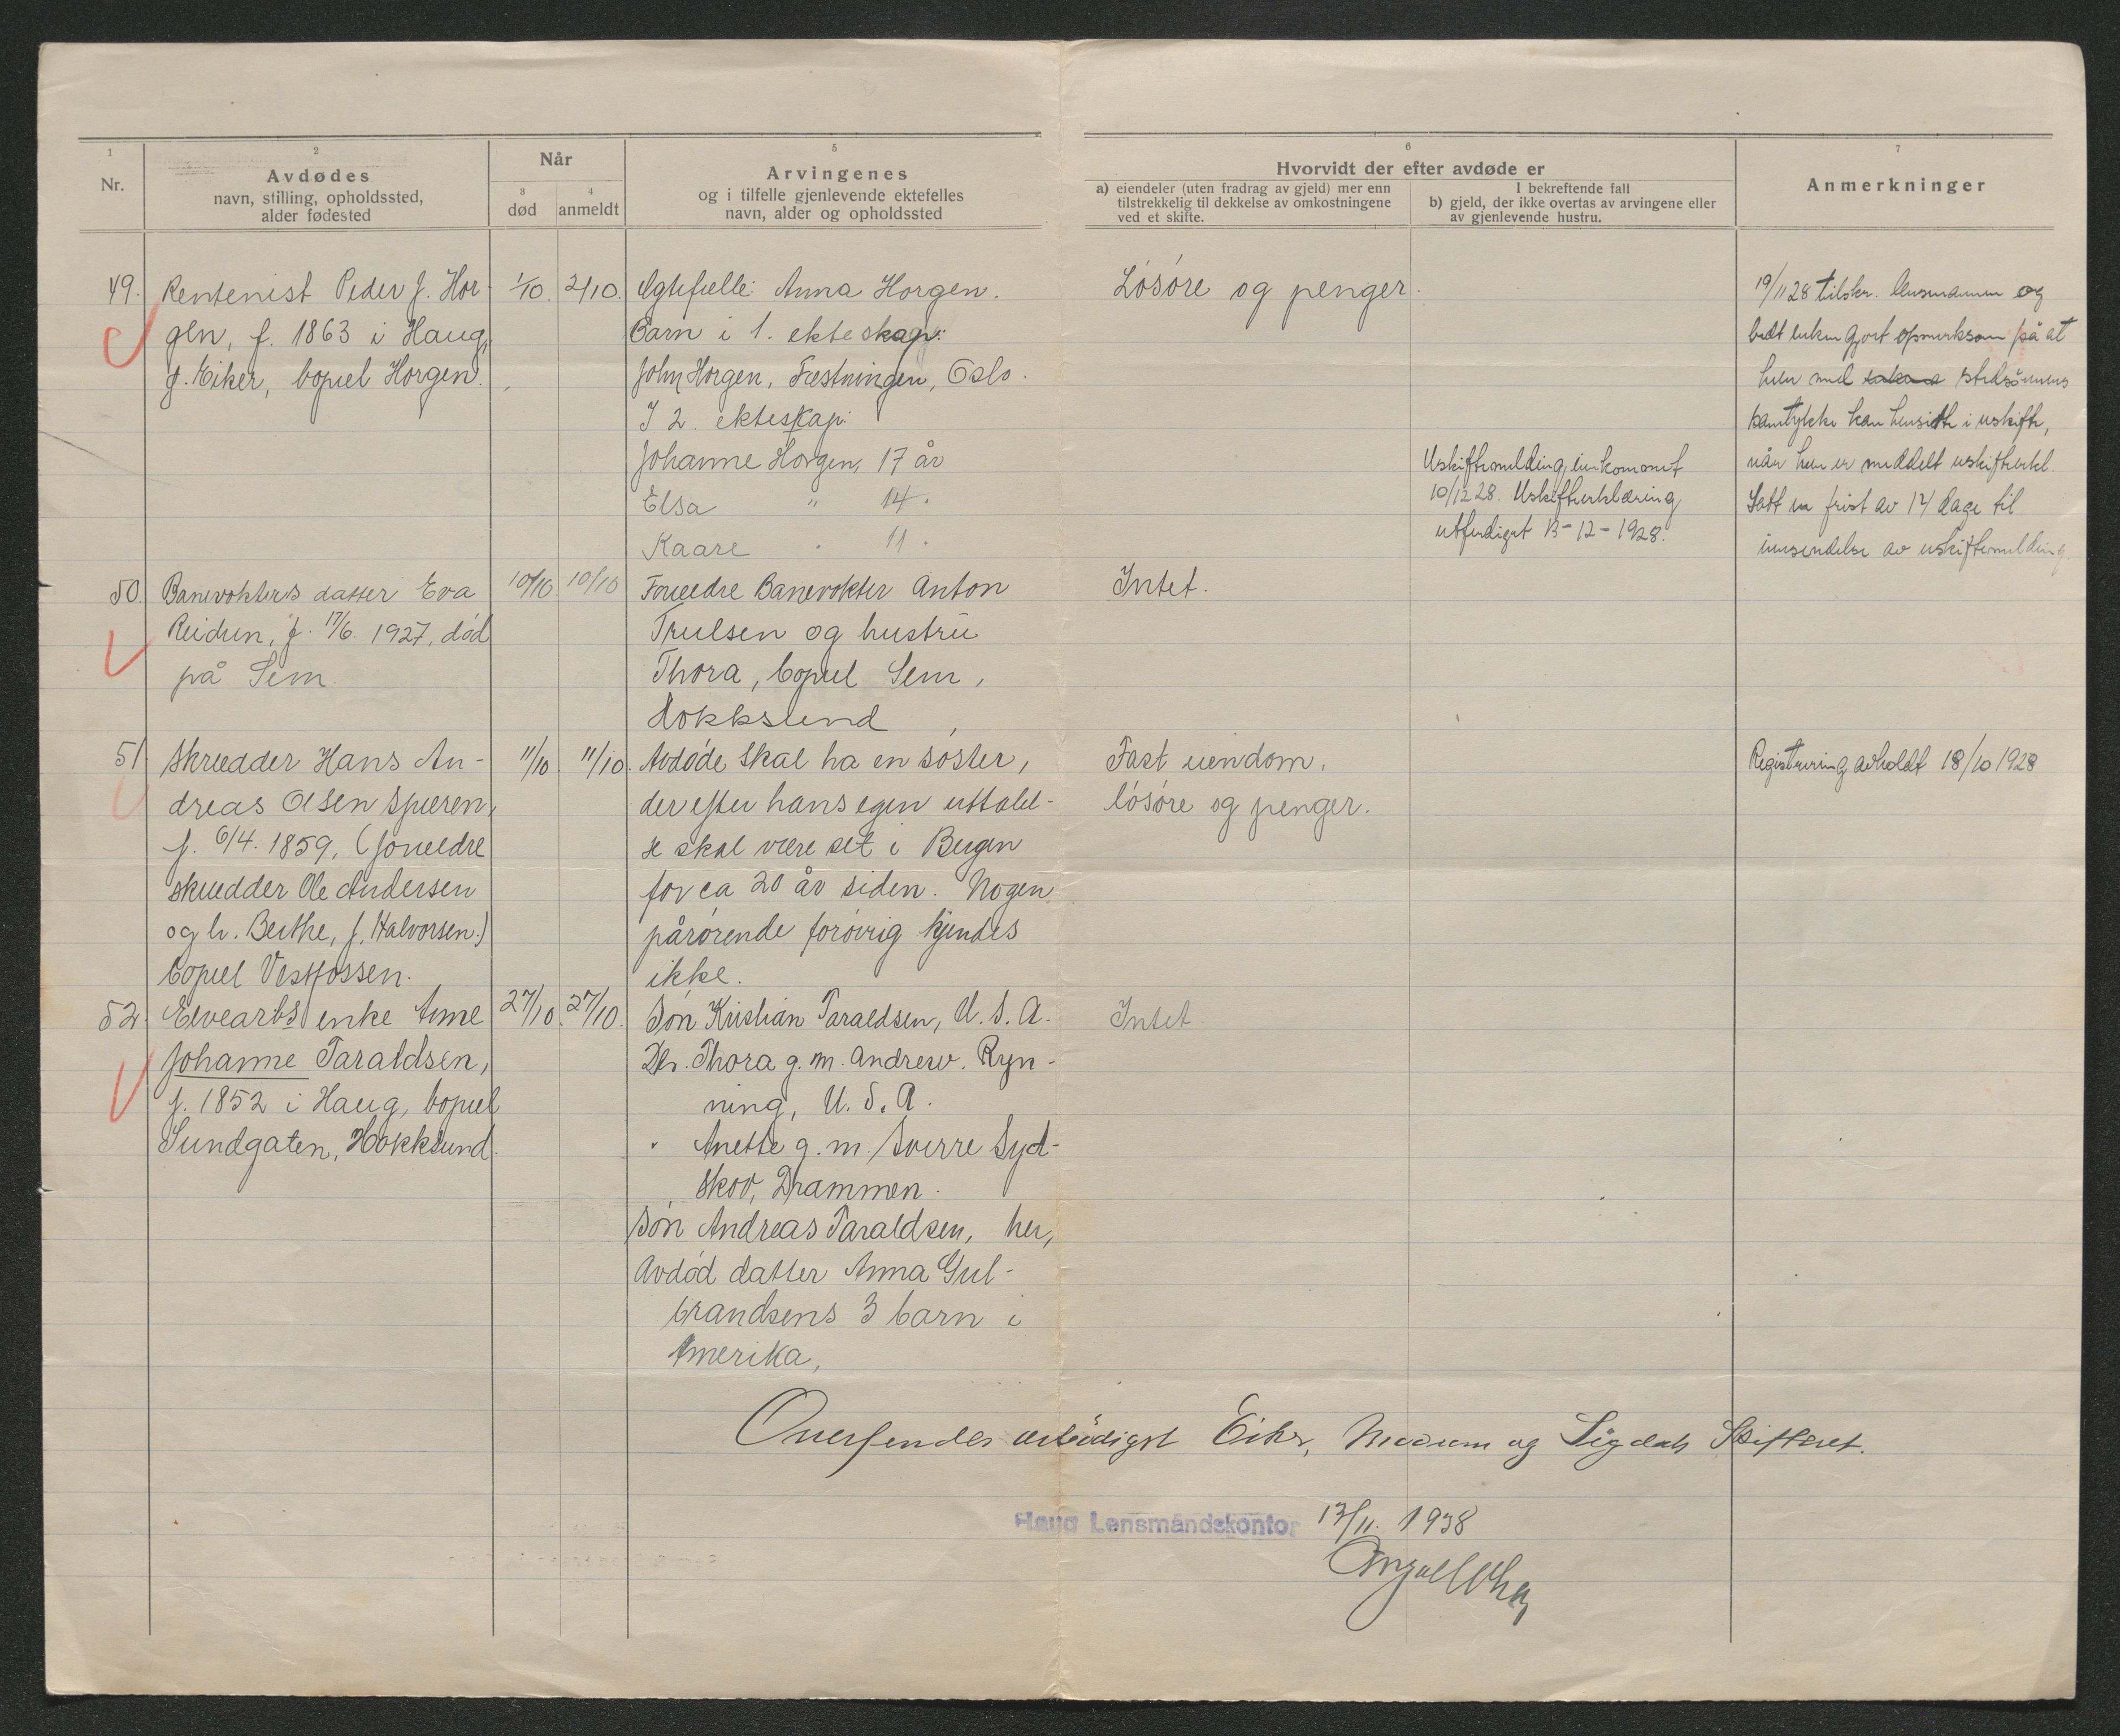 1
Nr.
2
Avdødes
navn, stilling, opholdssted,
alder fødested
Når
3
død
4
anmeldt
5
Arvingenes
og i tilfelle gjenlevende ektefelles
navn, alder og opholdssted
6
Hvorvidt der efter avdøde er
a) eiendeler (uten fradrag av gjeld) mer enn
tilstrekkelig til dekkelse av omkostningene
ved et skifte.
I bekreftende fall
b) gjeld, der ikke overtas av arvingene eller
av gjenlevende hustru.
7
Anmerkninger
49. Rentenist Peder J. Hor-
gen, f. 1863 i Haug,
Ø. Eiker, bopæl Horgen.
1/10. 2/10.
Ægtefælle: Anna Horgen.
Barn i 1. ekteskap:
John Horgen, Fæstningen, Oslo.
I 2. ekteskap:
Johanne Horgen, 17 år
Elsa " 14 "
Kaare " 11 "
Løsøre og penger.
Uskiftemelding innkommet
10/12 28. Uskifteerklæring
utferdiget 13-12-1928.
19/11 28 tilskr. lensmannen og
bedt enken gjort opmerksom på at
hun med stedsønnens
samtykke kan hensitte i uskifte,
når hun er meddelt uskifteerkl.
Satt en frist av 14 dage til
innsendelse av uskiftemelding.
50. Banevokters datter Eva
Reidun, f. 17/6. 1927, død
på Sem.
10/10 10/10
Forældre Banevokter Anton
Trulsen og hustru
Thora, bopæl Sem,
Hokksund
Intet.
51. Skrædder Hans An-
dreas Olsen Spæren,
f. 6/4. 1859, (forældre
skrædder Ole Andersen
og h. Berthe, f. Halvorsen.)
bopæl Vestfossen.
11/10 11/10.
Avdøde skal ha en søster,
der efter hans egen uttalel-
se skal være set i Bergen
for ca 20 år siden. Nogen
pårørende forøvrig kjendes
ikke.
Fast eiendom,
løsøre og penger.
Registrering avholdt 18/10 1928
52. Elvearb's enke Anne
Johanne Taraldsen,
f. 1852 i Haug, bopæl
Sundgaten, Hokksund.
27/10. 27/10.
Søn Kristian Taraldsen, U. S. A.
Dtr. Thora g. m. Andrew. Ryn-
ning, U. S. A.
" Anette g. m. Sverre Syd-
skov, Drammen.
Søn Andreas Taraldsen, her,
Avdød datter Anna Gul-
brandsens 3 barn i
Amerika,
Intet
Oversendes ærbødigst Eiker, Modum og Sigdals Skifteret.
Haug Lensmandskontor 13/11. 1928